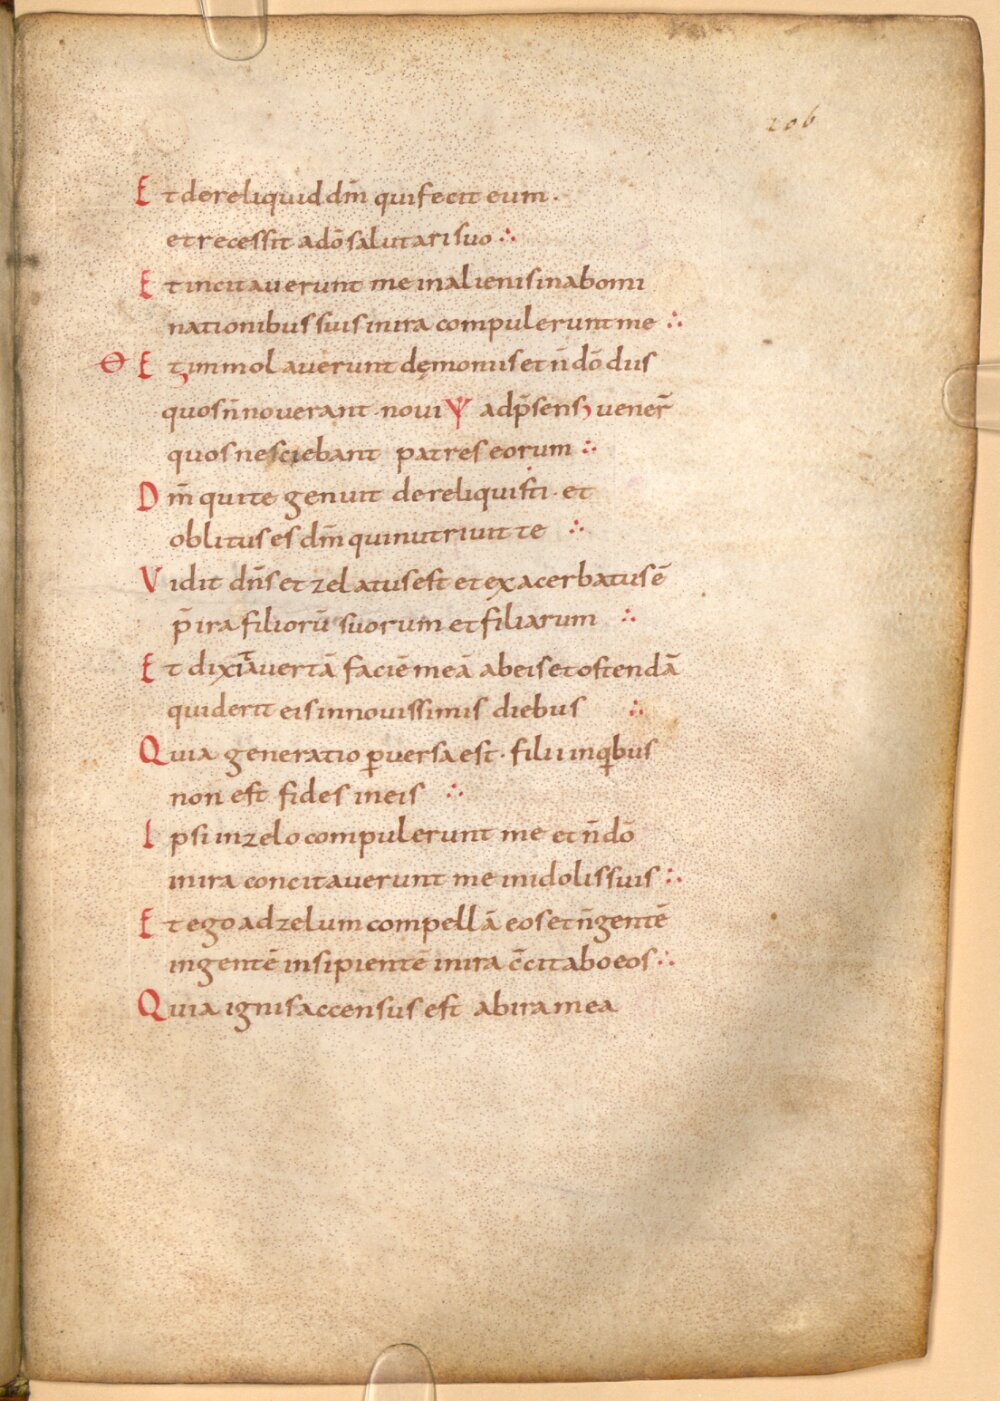 206
Et dereliquid dm̄ qui fecit eum ·
et recessit a dō salutari suo ∴
Et incitaverunt me in alienis in abomi
nationibus suis in ira compulerunt me ∴
Θ Et immolaverunt dęmoniis et n̄ dō diis
quos n̄ noverant · novi Ψ ad p̄sens venēr
quos nesciebant patres eorum ∴
Dm̄ qui te genuit dereliquisti · et
oblitus es dm̄ qui nutrivit te ∴
Vidit dn̄s et zelatus est et exacerbatus ē
p̄ ira filiorū suorum et filiarum ∴
Et dixit avertā faciē meā ab eis et ostendā
quid erit eis in novissimis diebus ∴
Quia generatio ꝑversa est · filii in qͥbus
non est fides in eis ∴
Ipsi in zelo compulerunt me et n̄ dō
in ira concitaverunt me in idolis suis ∴
Et ego ad zelum compellā eos et n̄ gentē
in gentē insipientē in ira c̄citabo eos ∴
Quia ignis accensus est ab ira mea